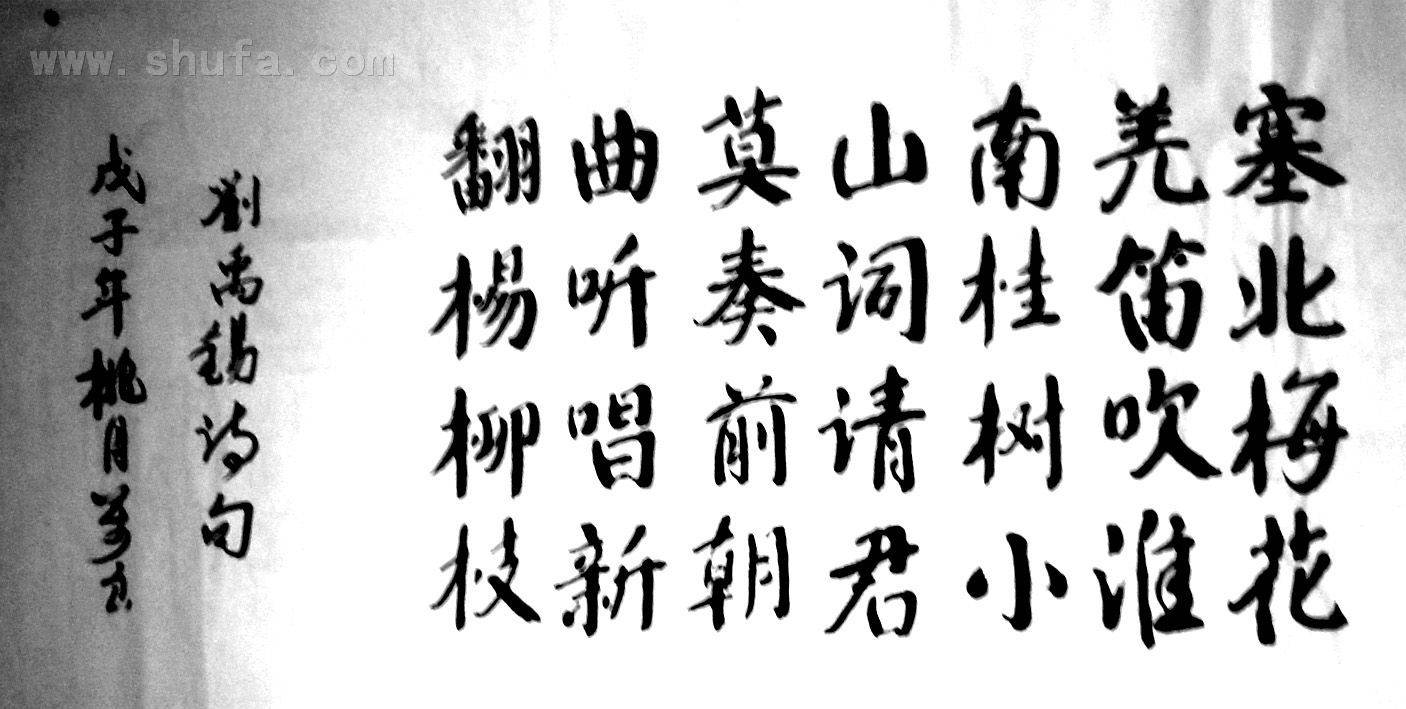 塞北梅花
羌笛吹淮
南桂树小
山词请君
莫奏前朝
曲听唱新
翻杨柳枝
劉禹锡诗句
戊子年桃月
www.shufa.com